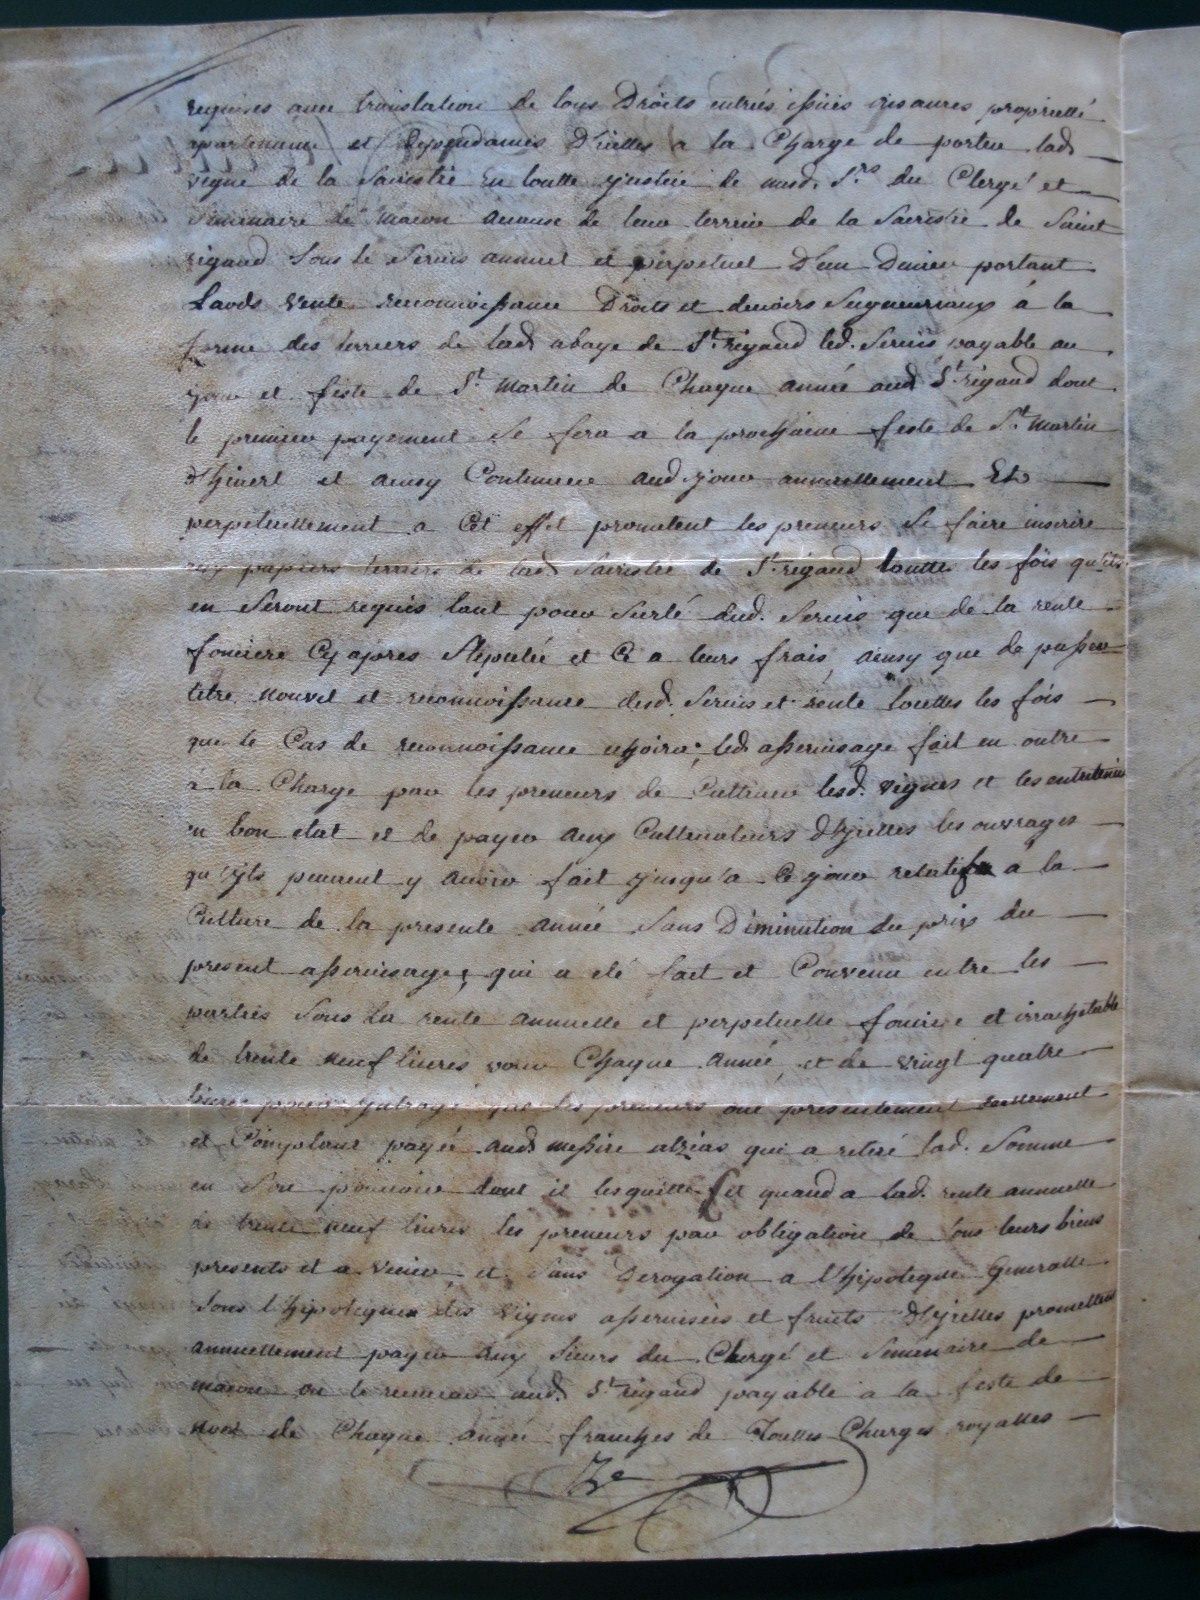 requises avec translation de tous Droits entrées issües aisances proprietté
apartenance et dependances D'icelles a la Charge de porter lad.
vigne de la Sacristie En toutte justice de mesd. Srs. du Clergé et
Seminaire de macon acause de leur terrier de la Sacristie de Saint
rigaud Sous le Servis annuel et perpetuel D'un Denier portant
Laods vente reconnoissance Droits et devoirs Seigneuriaux à la
forme des terriers de lad. abaye de St. rigaud led. Servis payable au
jour et feste de St. martin de Chaque année aud. St. rigaud dont
le premier payement Se fera a la prochaine feste de St. martin
d'hivert et ainsy Continuer aud. jour annuellement Et
perpetuellement a Cet effet promettent les preneurs Se faire inscrire
aux papiers terriers de lad. Sacristie de St. rigaud touttes les fois qu'ils
en Seront requis tant pour Surté dud. Servis que de la rente
fonciere Cy apres Stipulée et Ce a leurs frais, ainsy que de passer
titre nouvel et reconnoissance desd. Servis et rente touttes les fois
que le Cas de reconnoissance echoira; led. asservisage fait en outre
à la Charge par les preneurs de Cultiver lesd. vignes et les entretenir
en bon etat et de payer aux Cultivateurs d'Ycelles les ouvrages
qu'ils peuvent y avoir fait jusqu'a Ce jour relatifs a la
Culture de la presente année Sans Diminution du prix du
present asservisage; qui a eté fait et Convenu entre les
parties Sous la rente annuelle et perpetuelle fonciere et irrachetable
de trente neuf livres pour Chaque année, et de vingt quatre
livres pour que les preneurs ont presentement reellement
et Comptant payée aud. messire alzias qui a retiré lad. Somme
en Son pouvoir dont il les quitte et quand a lad. rente annuelle
de trente neuf livres les preneurs par obligation de tous leurs biens
presents et a venir et Sans Derogation a l'hipoteque Generalle
Sous l'hipoteque des vignes asservisées et fruits d'Ycelles promettent
annuellement payer aux Sieurs du Clergé et Seminaire de
macon ou le receveur aud. St. rigaud payable a la feste de
Noel de Chaque année franches de Touttes Charges royalles